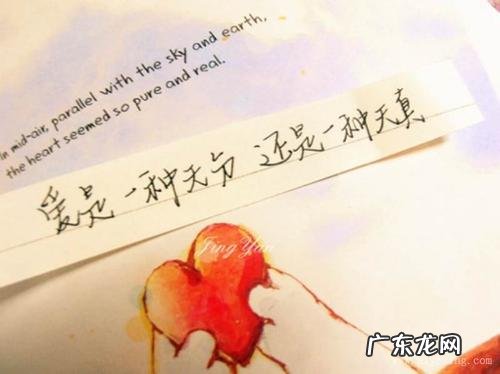 In mid-air, parallel with the sky and earth,
the heart seemed so pure and real.
爱是一种天分 还是一种天真
JingYan
广东龙网